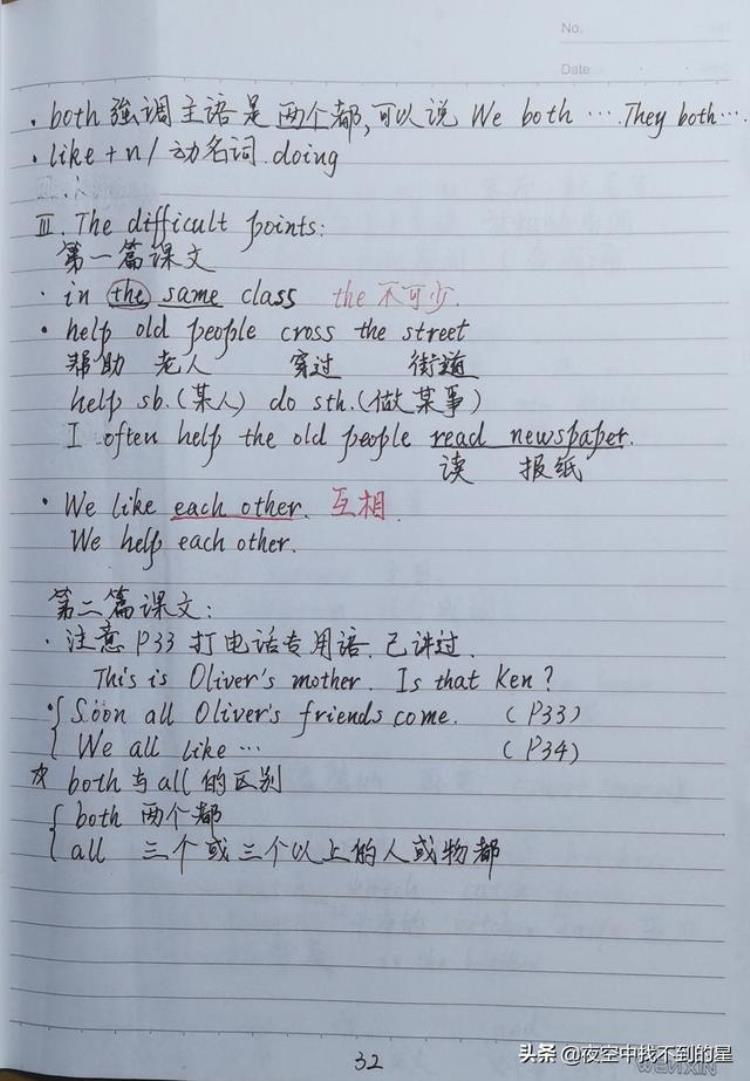 No.
Date
· both 強调 主语是 两个都,可以说 We both …. They both ….
· like + n / 动名词. doing
Ⅲ. The difficult points:
第一篇课文
· in the same class the 不可少.
· help old people cross the street
帮助 老人 穿过 街道
help sb. (某人) do sth. (做某事)
I often help the old people read newspaper.
读 报纸
· We like each other. 互相.
We help each other.
第二篇课文:
· 注意 P33 打电话专用语. 已讲过.
This is Oliver's mother. Is that Ken?
· { Soon all Oliver's friends come. (P33)
We all like … (P34)
☆ both 与 all 的区别
{ both 两个都
all 三个或三个以上的人或物都
32
头条 @夜空中找不到的星